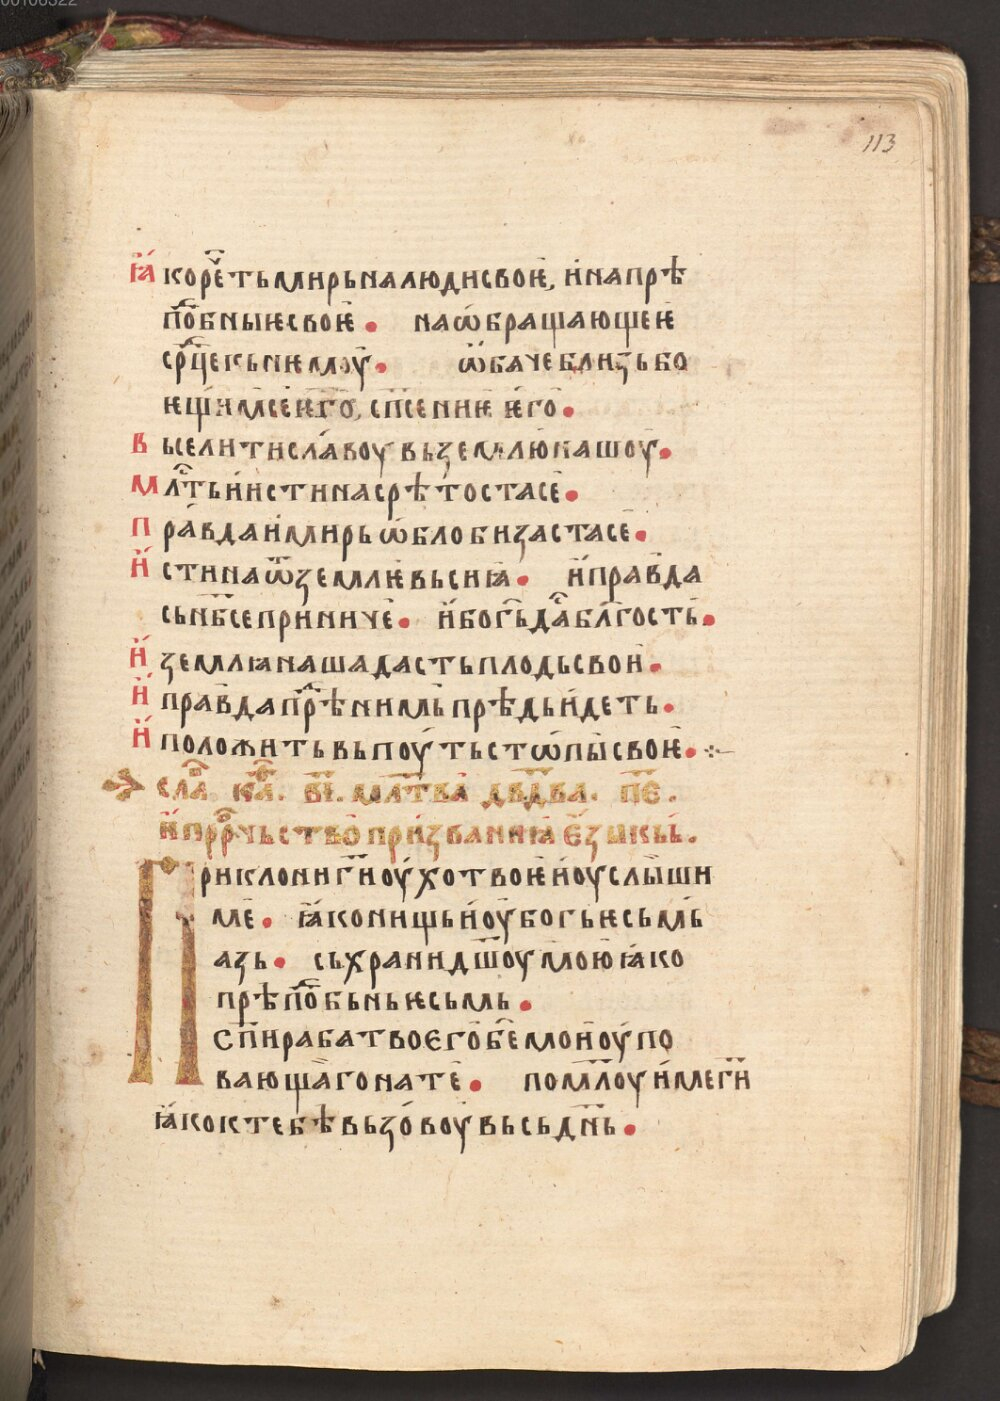 00106322
113
ꙗ҆кореⷱ҇тьмирьналюдисвоѥ҆, и҆напрѣ
пⷣобныѥсвоѥ҆. наѡ҆бращающеѥ
срⷣцекьнѥмоу҆. ѡ҆бачеблизьбо
ѥщи҆мсеѥ҆го҆, сп҃сениѥ ѥ҆го.
вьселитисла́воувьземлю҆нашоу҆.
млⷭ҇тьи҆и҆стинасрѣ́тостасе҆.
пра́вдаи҆мирьѡ҆блобизастасе҆.
и҆стинаѿземлѥ҆вьсиꙗ҆. и҆правда
сьнб҃сеприниче҆. и҆богьда́бл҃гость.
и҆землꙗнашадастьплодьсвои҆.
и҆правдапрⷣѣнимьпрѣдьи҆деть.
и҆положитьвьпоу́тьстѡпы҆своѥ҆.
слаⷡ҇ каⷴ҇. в҃і. мл҃тва дв҃два. п҃е.
и҆прⷪ҇рчьствопри́званиꙗ҆ є҆зыкы҆.
Приклониг҃иоу҆хотвоѥ҆и҆оуслы́ши
ме҆. ꙗ҆конищьи҆оу҆богьѥсьмь
азь. сьхранидш҃оумою҆ꙗко
прѣпⷣобьньѥсьмь.
сп҃ирабатвоєго҆бⷤемои҆оу҆по
вающа́гонате҆. помл҃оуи҆мег҃и
ꙗ҆коктебѣвьзо́воу҆вьсьдн҃ь.